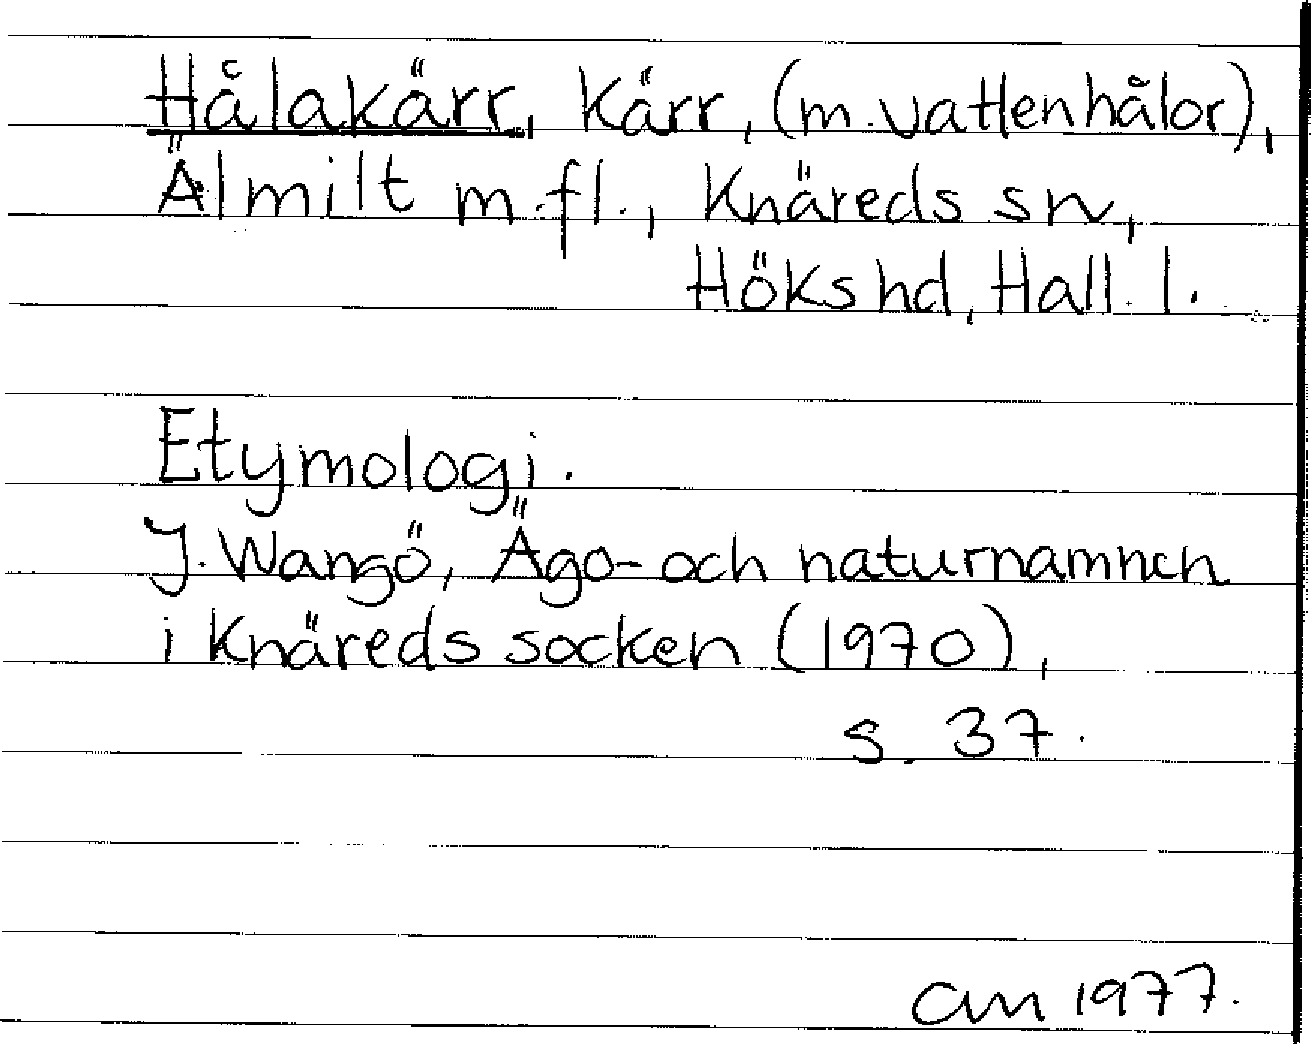 Hålakärr, Kärr, (m. vattenhålor),
Älmilt m.fl., Knäreds sn,
Höks hd, Hall. l.
Etymologi.
J. Wangö, Ägo- och naturnamnen
i Knäreds socken (1970),
s. 37.
am 1977.